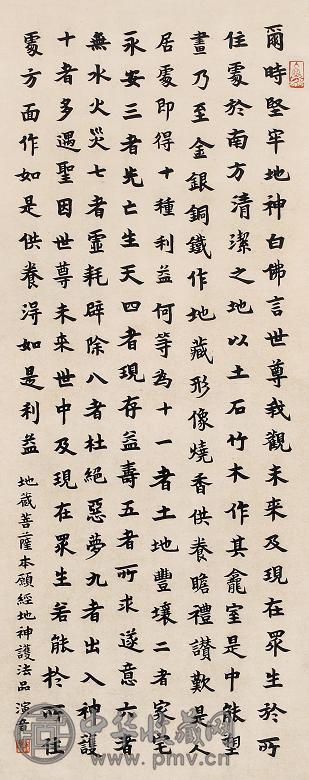 爾時堅牢地神白佛言世尊我觀未來及現在眾生於所
住處於南方清潔之地以土石竹木作其龕室是中能塑
畫乃至金銀銅鐵作地藏形像燒香供養瞻禮讚歎是人
居處即得十種利益何等為十一者土地豐壤二者家宅
永安三者先亡生天四者現存益壽五者所求遂意六者
無水火災七者虛耗辟除八者杜絕惡夢九者出入神護
十者多遇聖因世尊未來世中及現在眾生若能於所住
處方面作如是供養得如是利益
地藏菩薩本願經地神護法品 演音
中华收藏网